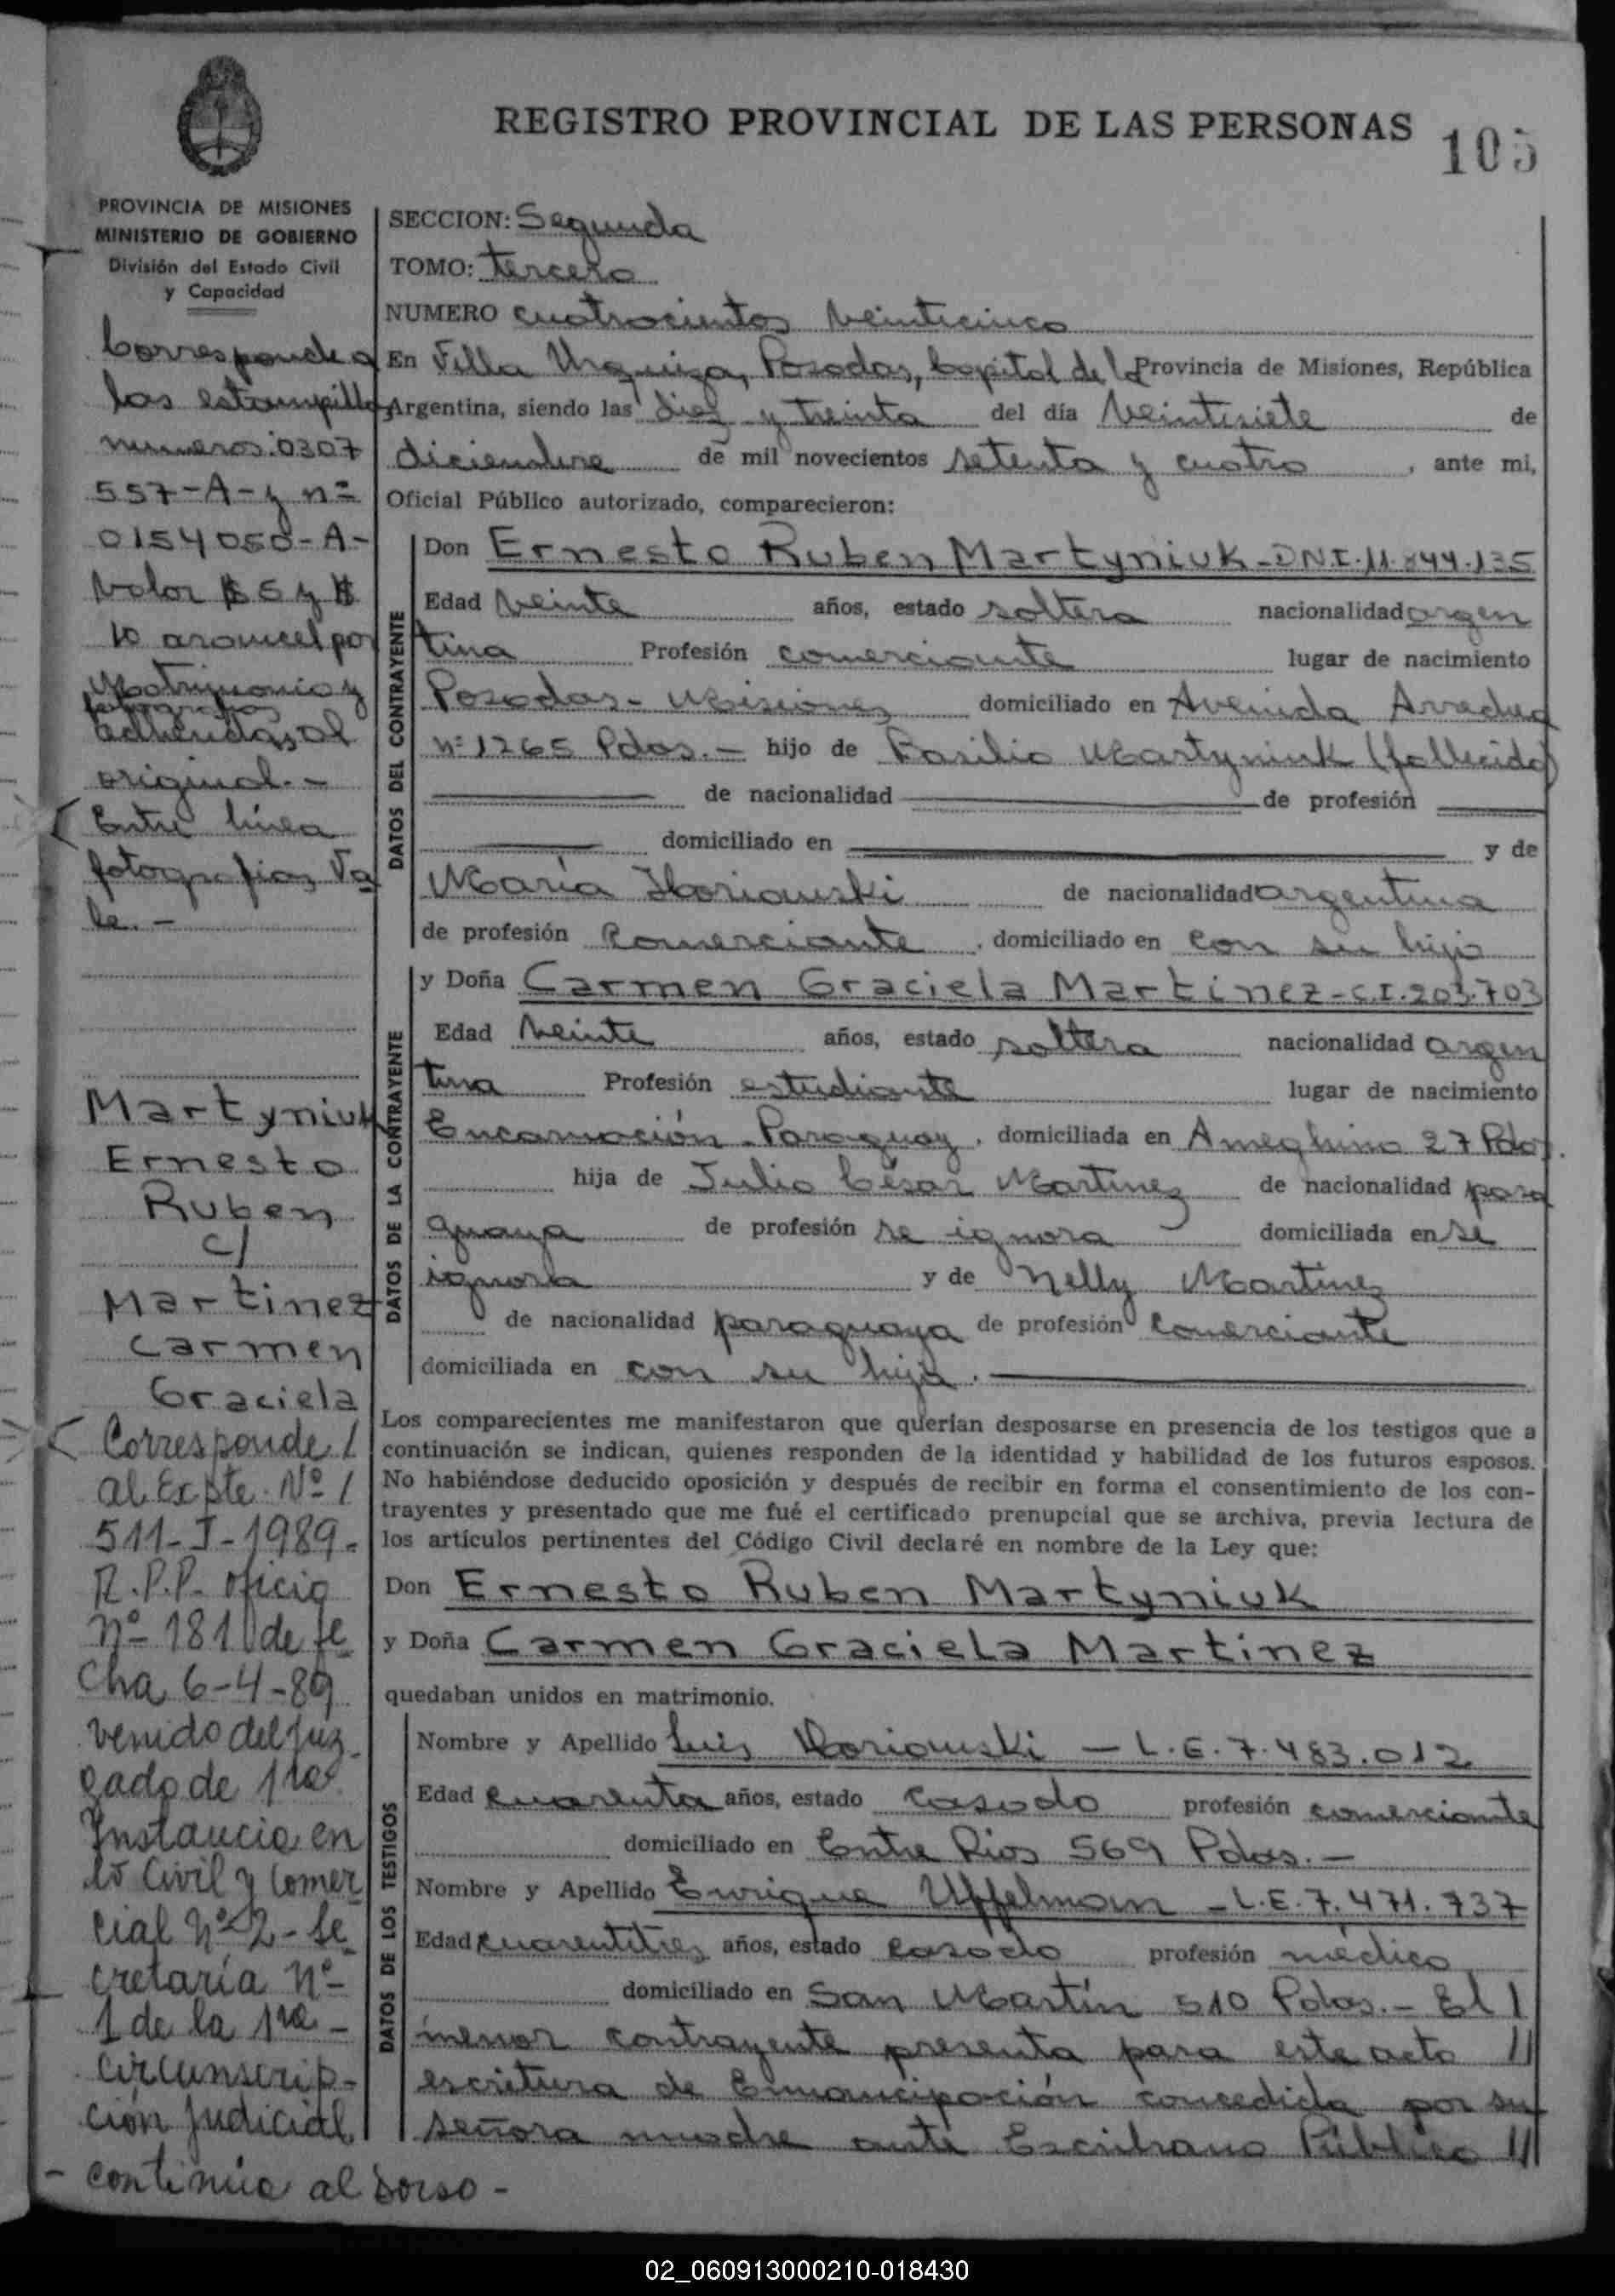 REGISTRO PROVINCIAL DE LAS PERSONAS
105
PROVINCIA DE MISIONES
MINISTERIO DE GOBIERNO
División del Estado Civil
y Capacidad
Corresponde a
las estampillas
numeros: 0307
557-A-y nº
0154050-A-
Valor $ 5 y $
10 arancel por
Matrimonio y
fotografias
adheridas al
original.-
Entre línea
fotografias Va
le.-
Martyniuk
Ernesto
Ruben
c/
Martinez
Carmen
Graciela
Corresponde /
al Expte. Nº /
511-I-1989.
R.P.P. oficio
nº 181 de fe
cha 6-4-89
venido del juz
gado de 1ra
Instancia en
lo Civil y Comer
cial nº 2 - Se
cretaría nº
1 de la 1ra -
circunscrip-
ción judicial
- continúa al dorso -
SECCION: Segunda
TOMO: tercero
NUMERO cuatrocientos veinticinco
En Villa Urquiza, Posadas, Capital de la Provincia de Misiones, República
Argentina, siendo las diez y treinta del día veintisiete de
diciembre de mil novecientos setenta y cuatro, ante mi,
Oficial Público autorizado, comparecieron:
DATOS DEL CONTRAYENTE
Don Ernesto Ruben Martyniuk - DNI. 11.844.135
Edad veinte años, estado soltero nacionalidad argen
tina Profesión comerciante lugar de nacimiento
Posadas - Misiones domiciliado en Avenida Arrechea
nº 1265 Pdas.- hijo de Basilio Martyniuk (fallecido)
de nacionalidad de profesión
domiciliado en y de
María de nacionalidad argentina
de profesión Comerciante, domiciliado en con su hijo
DATOS DE LA CONTRAYENTE
y Doña Carmen Graciela Martinez - C.I. 203.703
Edad veinte años, estado soltera nacionalidad argen
tina Profesión estudiante lugar de nacimiento
Encarnación - Paraguay, domiciliada en Ameghino 27 Pdas.
hija de Julio César Martinez de nacionalidad para
guaya de profesión se ignora domiciliada en se
ignora y de Nelly Martinez
de nacionalidad paraguaya de profesión comerciante
domiciliada en con su hija.
Los comparecientes me manifestaron que querían desposarse en presencia de los testigos que a
continuación se indican, quienes responden de la identidad y habilidad de los futuros esposos.
No habiéndose deducido oposición y después de recibir en forma el consentimiento de los con-
trayentes y presentado que me fué el certificado prenupcial que se archiva, previa lectura de
los artículos pertinentes del Código Civil declaré en nombre de la Ley que:
Don Ernesto Ruben Martyniuk
y Doña Carmen Graciela Martinez
quedaban unidos en matrimonio.
DATOS DE LOS TESTIGOS
Nombre y Apellido Luis - L.E. 7.483.012
Edad cuarenta años, estado casado profesión comerciante
domiciliado en Entre Rios 569 Pdas.-
Nombre y Apellido Enrique Uffelmann - L.E. 7.471.737
Edad cuarentitres años, estado casado profesión médico
domiciliado en San Martín 510 Pdas.- El /
menor contrayente presenta para este acto //
escritura de Emancipación concedida por su
señora madre ante Escribano Público //
02_060913000210-018430